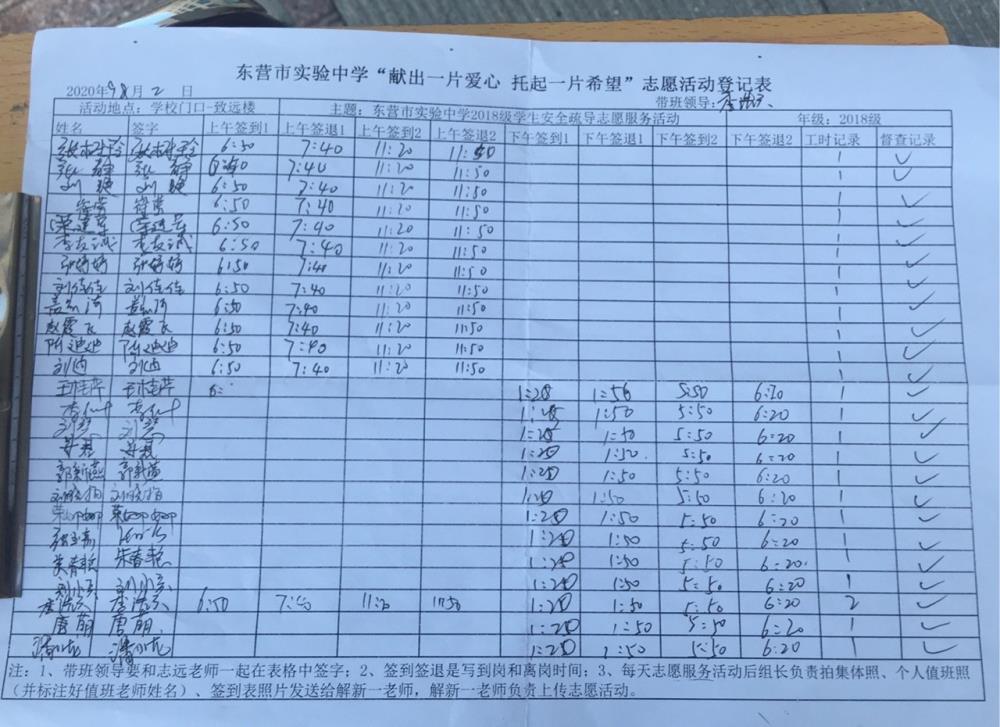 东营市实验中学“献出一片爱心 托起一片希望”志愿活动登记表
2020年9月2日 带班领导:
活动地点:学校门口-致远楼 主题:东营市实验中学2018级学生安全疏导志愿服务活动 年级:2018级
姓名 签字 上午签到1 上午签退1 上午签到2 上午签退2 下午签到1 下午签退1 下午签到2 下午签退2 工时记录 督查记录
6:50 7:40 11:20 11:50 1 ✓
张静 张静 7:40 11:20 11:50 1 ✓
刘 刘 6:50 7:40 11:20 11:50 1
6:50 7:40 11:20 11:50 1 ✓
6:50 7:40 11:20 11:50 1 ✓
李友诚 李友诚 6:50 7:40 11:20 11:50 1 ✓
张婷婷 张婷婷 6:50 7:40 11:20 11:50 1 ✓
刘佳佳 刘佳佳 6:50 7:40 11:20 11:50 1 ✓
6:50 7:40 11:20 11:50 1 ✓
赵霞飞 赵霞飞 6:50 7:40 11:20 11:50 1 ✓
陈迪迪 陈迪迪 6:50 7:40 11:20 11:50 1 ✓
刘 刘 6:50 7:40 11:20 11:50 1 ✓
王桂萍 王桂萍 6: 1:20 1:50 5:50 6:20 1 ✓
李 李 1:50 5:50 6:20 1 ✓
刘 刘 1:20 1:50 5:50 6:20 1 ✓
1:20 1:50 5:50 6:20 1 ✓
郭新燕 郭新燕 1:20 1:50 5:50 6:20 1 ✓
刘 刘 1:20 1:50 5:50 6:20 1 ✓
1:20 1:50 5:50 6:20 1 ✓
张 1:20 1:50 5:50 6:20 1 ✓
朱春艳 1:20 1:50 5:50 6:20 1 ✓
刘小 刘小 1:20 1:50 5:50 6:20 1 ✓
李 李 6:50 7:40 11:20 11:50 1:20 1:50 5:50 6:20 2 ✓
唐萌 唐萌 1:20 1:50 5:50 6:20 1 ✓
1:20 1:50 5:50 6:20 1 ✓
注:1、带班领导要和志远老师一起在表格中签字;2、签到签退是写到岗和离岗时间;3、每天志愿服务活动后组长负责拍集体照、个人值班照
(并标注好值班老师姓名)、签到表照片发送给解新一老师,解新一老师负责上传志愿活动。